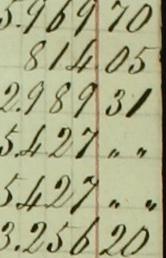 5.969 70
814 05
2.989 31
5.427 „ „
5.427 „ „
3.256 20